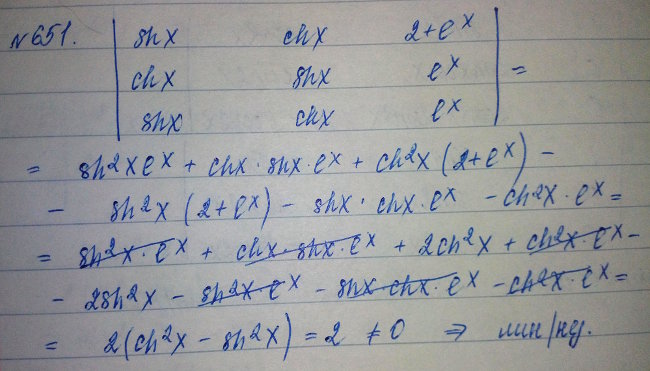 №651. | shx chx 2+e^x |
| chx shx e^x | =
| shx chx e^x |
= sh²x e^x + chx · shx · e^x + ch²x (2+e^x) -
- sh²x (2+e^x) - shx · chx · e^x - ch²x · e^x =
= sh²x · e^x + chx · shx · e^x + 2ch²x + ch²x · e^x -
- 2sh²x - sh²x e^x - shx · chx · e^x - ch²x · e^x =
= 2(ch²x - sh²x) = 2 ≠ 0 ⇒ лин/нз.